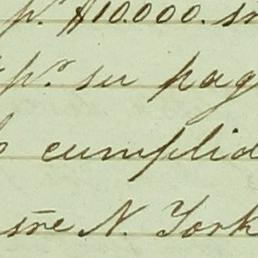 p.r $10.000. s
p.r su pag
cumplid
sre N. York